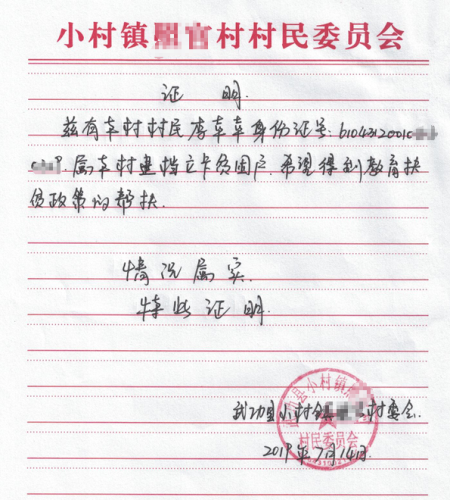 小村镇官村村民委员会
证 明.
兹有本村村民李 身份证号:61043120010
属本村建档立卡贫困户,希望得到教育扶
贫政策的帮扶.
情况属实.
特此证明.
武功县小村镇 村委会.
2019年7月14日.
武功县小村镇
村民委员会